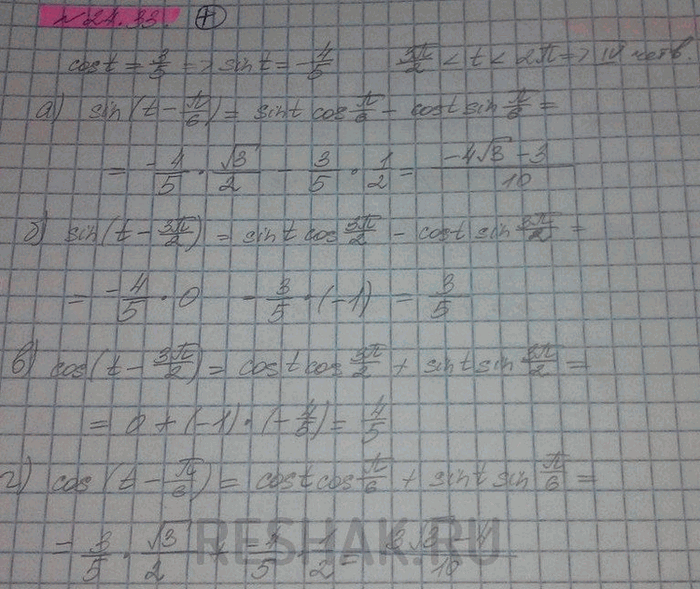 №24.33. +
cost = 3/5 => sint = -4/5 3π/2 < t < 2π => IV четв.
а) sin(t - π/6) = sint cos π/6 - cost sin π/6 =
= -4/5 · √3/2 - 3/5 · 1/2 = (-4√3 - 3)/10
б) sin(t - 3π/2) = sint cos 3π/2 - cost sin 3π/2 =
= -4/5 · 0 - 3/5 · (-1) = 3/5
в) cos(t - 3π/2) = cost cos 3π/2 + sint sin 3π/2 =
= 0 + (-1) · (-4/5) = 4/5
г) cos(t - π/6) = cost cos π/6 + sint sin π/6 =
= 3/5 · √3/2 + -4/5 · 1/2 = (3√3 - 4)/10
RESHAK.RU